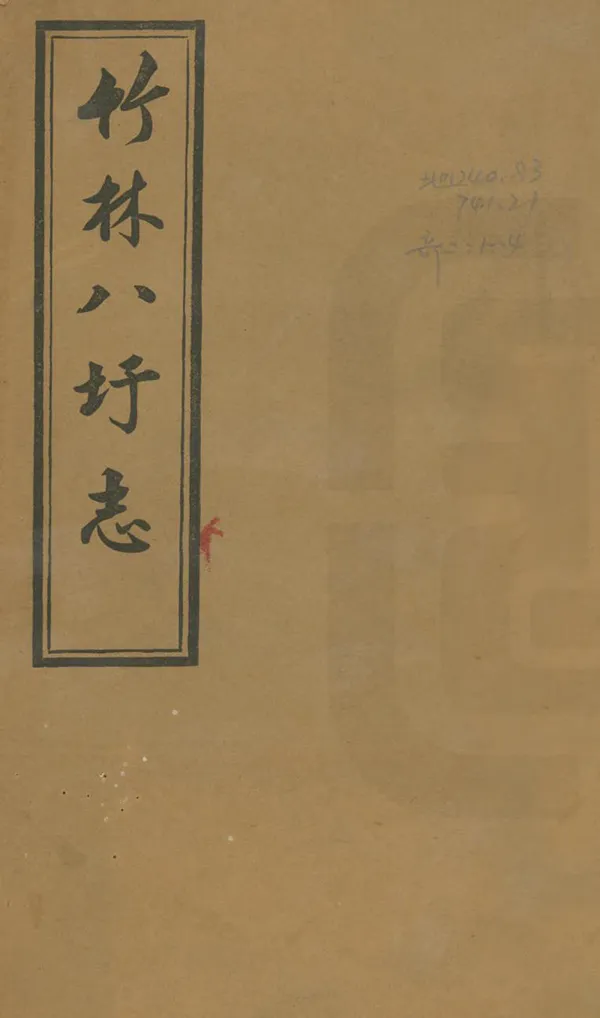 竹林八圩志
地240.83
741.21